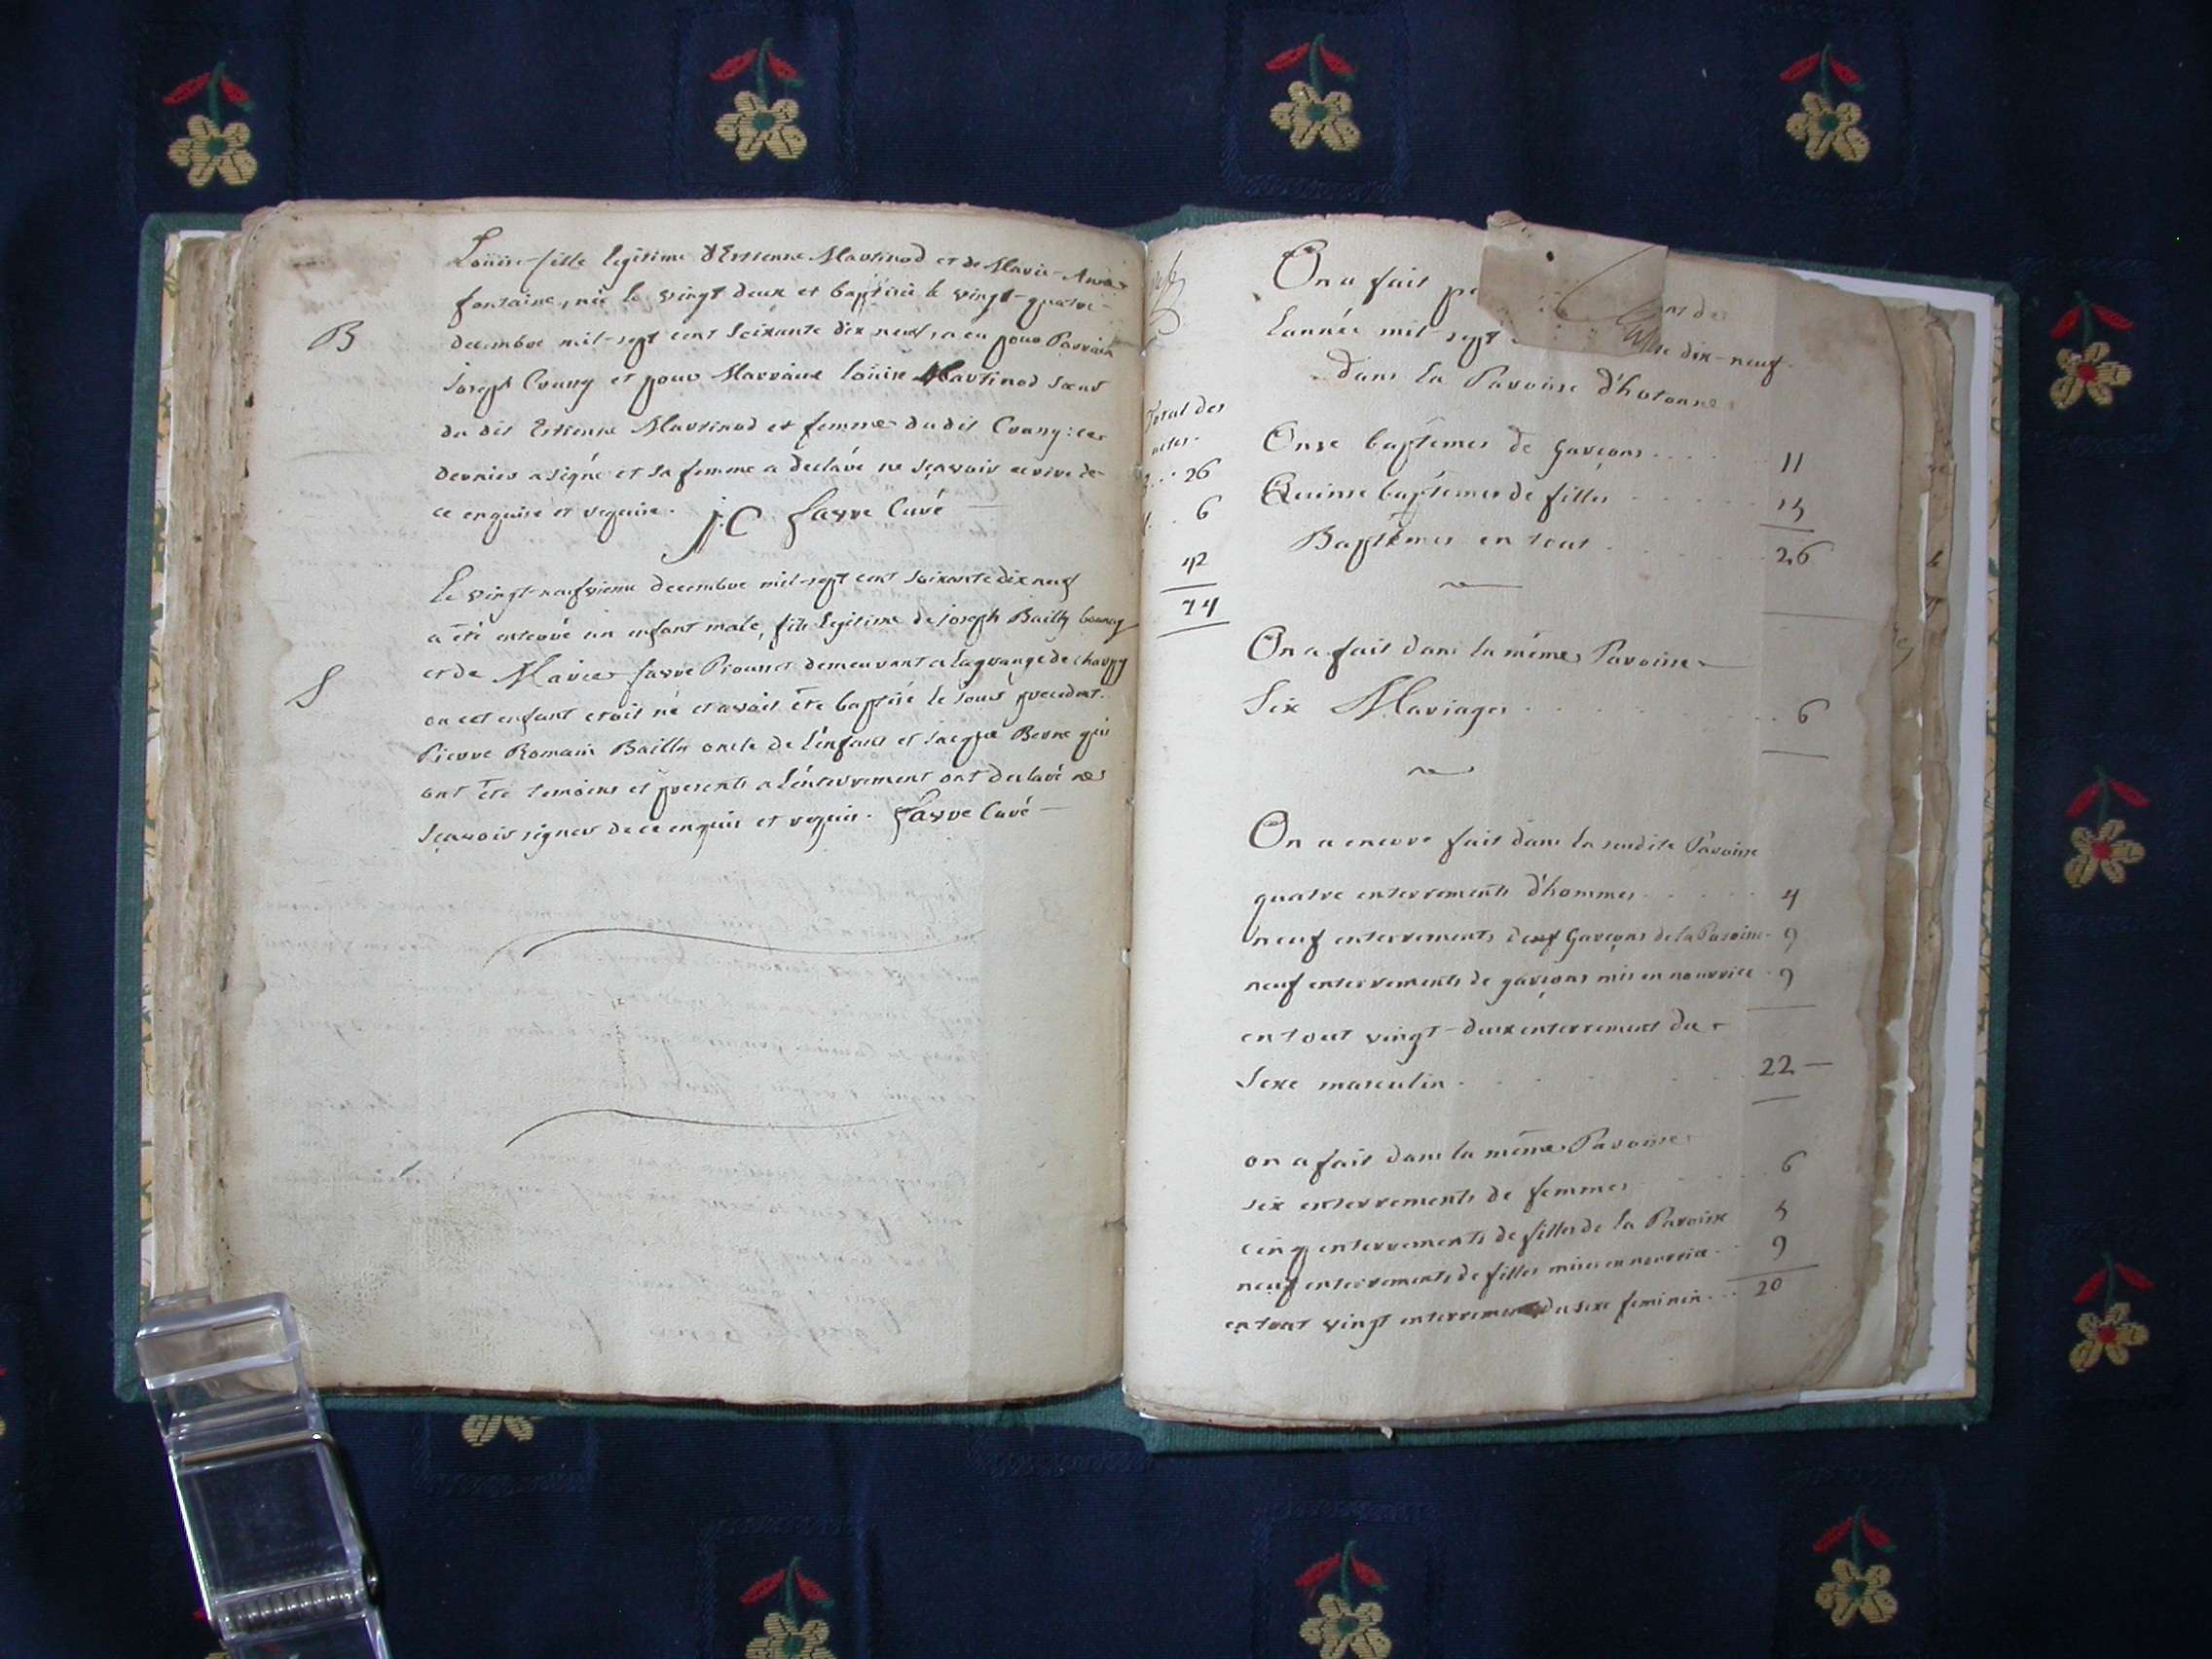 Loüise fille legitime d'Estienne Martinod et de Marie-Anne
fontaine, née le vingt deux et baptisée le vingt-quatre
B
decembre mil-sept cent soixante dix neuf, a eu pour Parrain
joseph Crany et pour Marraine loüise Martinod soeur
du dit Estienne Martinod et femme du dit Crany: ce
dernier a signé et sa femme a declaré ne sçavoir ecrire de
ce enquise et requise. J:C favre Curé
Le vingt-neufvieme decembre mil-sept cent soixante dix neuf
a été enterré un enfant male, fils legitime de joseph Bailly
et de Marie favre demeurant a lagrange de
S
ou cet enfant etoit né et avoit été baptisé le jour precedent.
Pierre Romain Bailly oncle de l'enfant et jacque Berne qui
ont été temoins et presents a l'enterrement ont declaré ne
sçavoir signer de ce enquis et requis. favre Curé
On a fait
L'année mil-sept dix-neuf
dans la Paroisse d'hotonne
Total des
actes.
26
6
42
74
Onze baptemes de garçons 11
Quinse baptemes de filles 15
Baptemes en tout 26
On a fait dans la même Paroisse
Six Mariages 6
On a encore fait dans la susdite Paroisse
quatre enterrements d'hommes 4
neuf enterrements de garçons de la Paroisse 9
neuf enterrements de garçons mis en nourrice 9
en tout vingt-deux enterrement du
sexe masculin 22
on a fait dans la même Paroisse
six enterrements de femmes 6
cinq enterrements de filles de la Paroisse 5
neuf enterrements de filles mises en nourrice 9
en tout vingt enterrement du sexe feminin 20